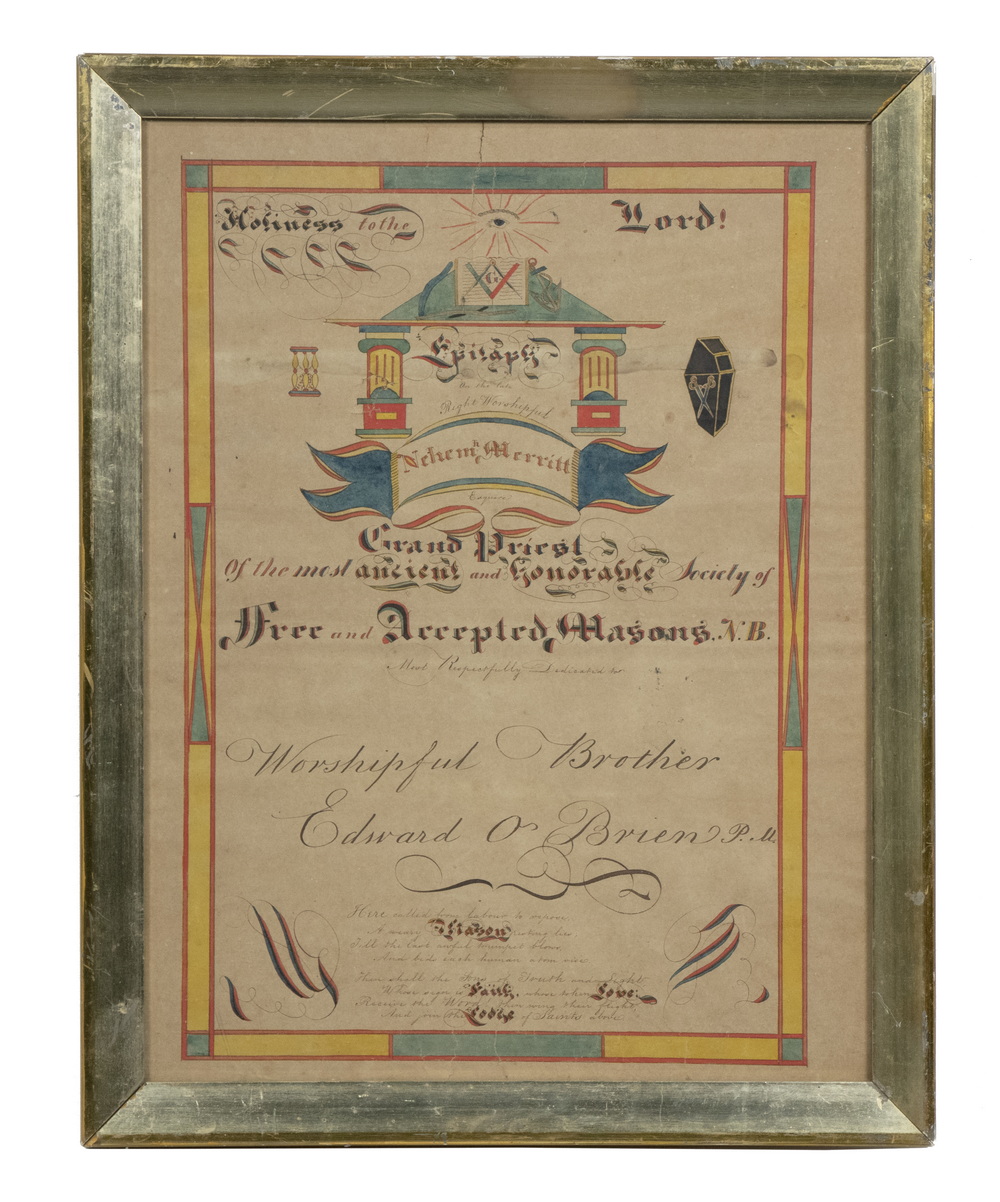 Holiness to the Lord!
G
Epitaph
On the late
Right Worshipful
Nehem.h Merritt
Esquire
Grand Priest
Of the most ancient and Honorable Society of
Free and Accepted Masons. N.B.
Most Respectfully dedicated to
Worshipful Brother
Edward O Brien P.M.
Here called from Labour to repose
A weary Mason resting lies
Till the last awful trumpet blows
And bids each human atom rise
Then shall the Sons of Truth and Light
Whose is Faith, whose Love
Receive the Word, then wing their flight
And join the Lodge of Saints